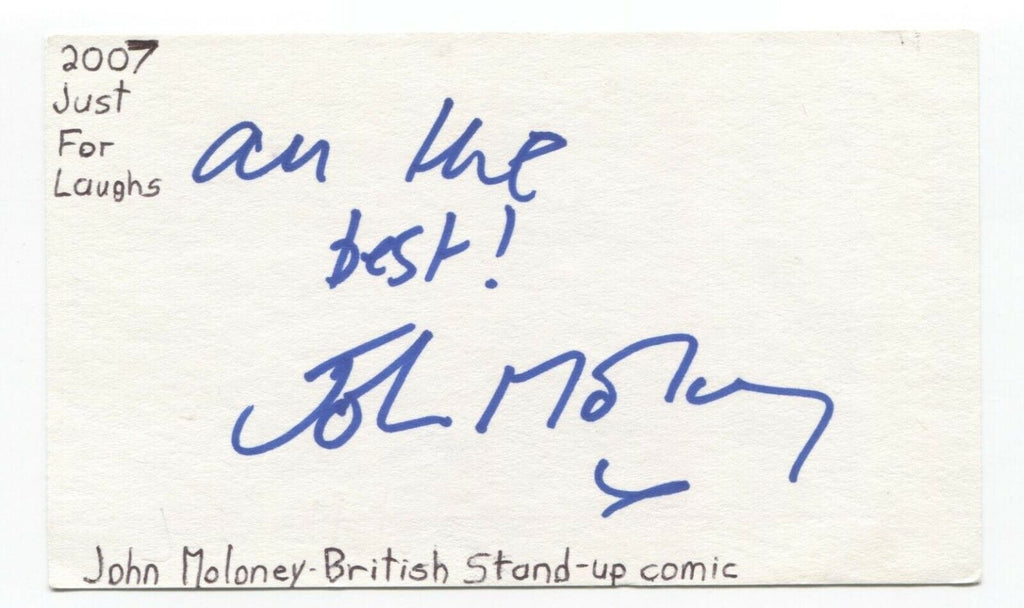 2007
Just
For
Laughs
all the
best!
John Moloney
John Moloney-British Stand-up comic